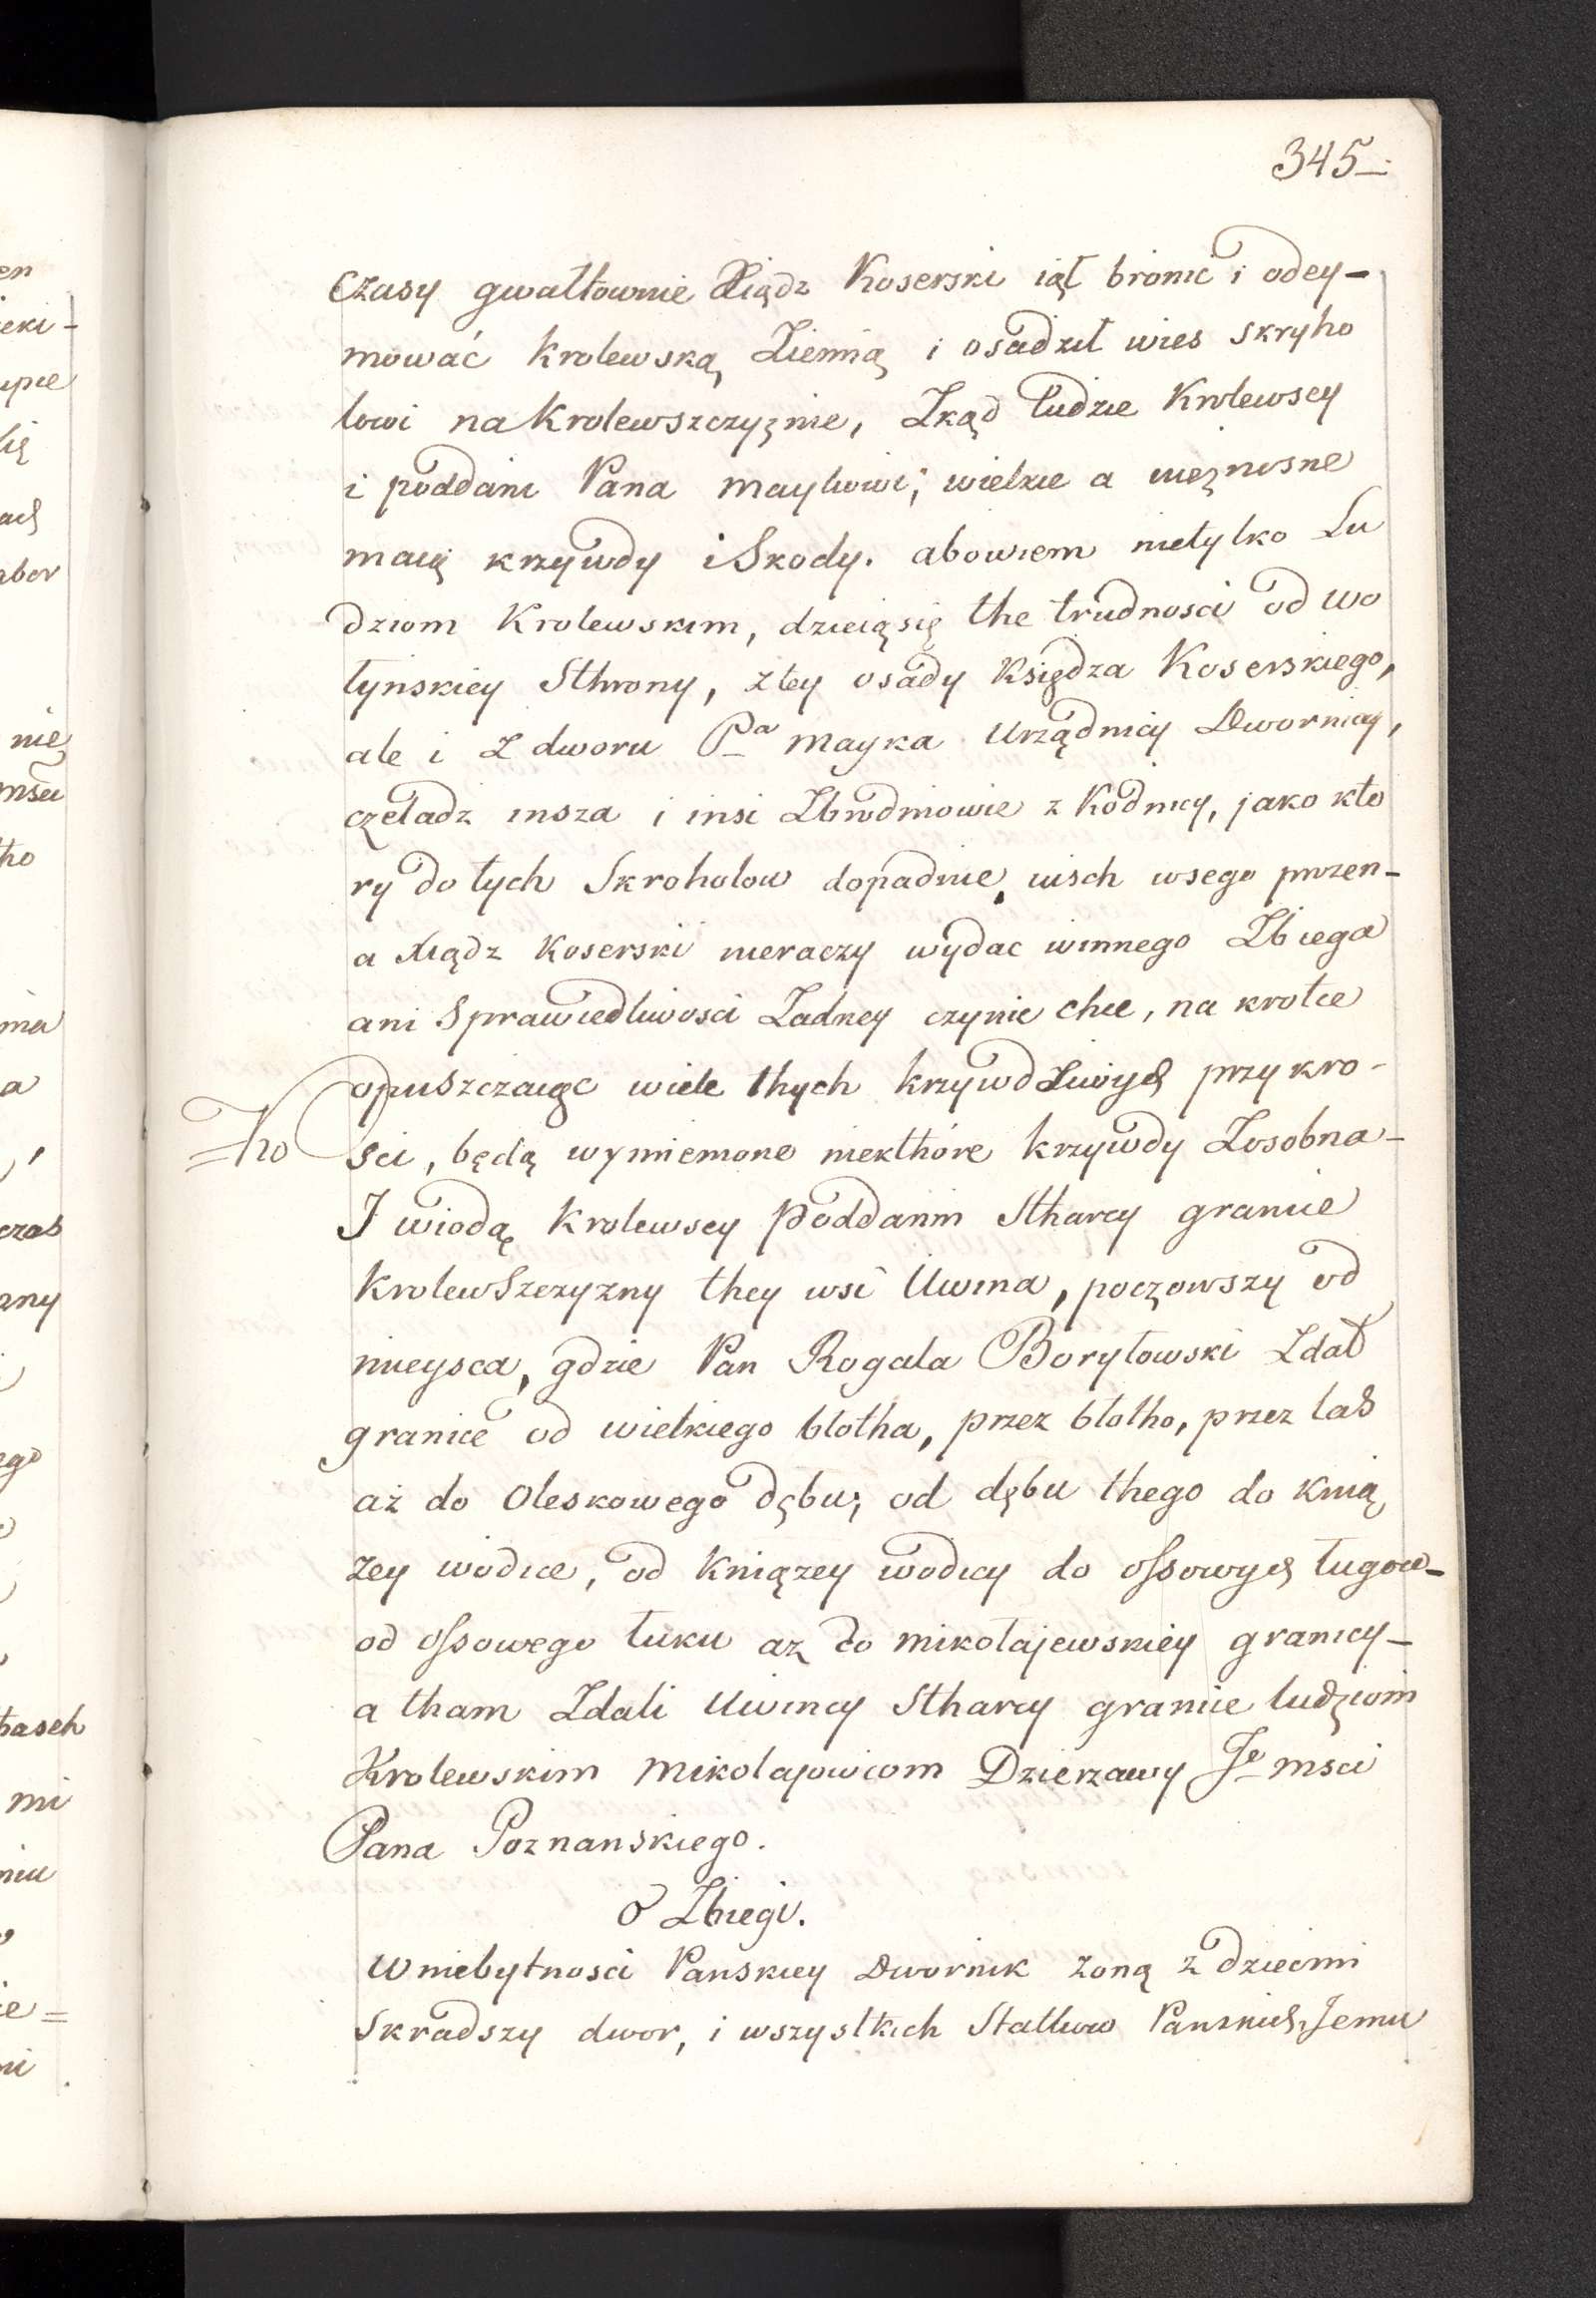 345
czasy gwałtownie Xiądz Koserski iął bronić i odey-
mować krolewską Ziemią i osadził wies Skryho
lowi na krolewszczyznie, Zkąd ludzie Krolewscy
i poddani Pana maykowi; wielkie a nieznosne
maią krzywdy i Skody. abowiem nietylko Lu
dziom Krolewskim, dzieią się the trudnosci od wo
łynskiey Sthrony, z tey osady Księdza Koserskiego,
ale i Z dworu Pa mayka Urządnicy Dwornicy,
czeladz insza i insi Zbrodniowie z Kodnicy, jako kto
ry do tych Skroholow dopadnie, uisch wsego przen-
a Xiądz Koserski nieraczy wydac winnego Zbiega
ani Sprawiedliwosci Zadney czynic chce, na krotce
opuszczaiąc wiele thych krzywd Zwoych przykro-
Tho sci, będą wymienione niekthóre krzywdy Zosobna-
I wiodą Krolewscy Poddanni Stharcy granice
KrolewSzczyzny they wsi Uwina, począwszy od
mieysca, gdzie Pan Rogala Borytowski Zdał
granice od wielkiego błotha, przez błotho, przez las
aż do Oleskowego dębu; od dębu thego do Knią
zey wodice, od Kniązey wodicy do ossowych ługow-
od ossowego łuku az do mikołajewskiey granicy-
a tham Zdali Uwincy Stharcy granice ludziom
Krolewskim Mikolajowicom Dzierzawy Je msci
Pana Poznanskiego.
o Zbiegi.
W niebytnosci Panskiey Dwornik zoną z dziecmi
Skradszy dwor, i wszystkich Stattkow Panskich, Jemu